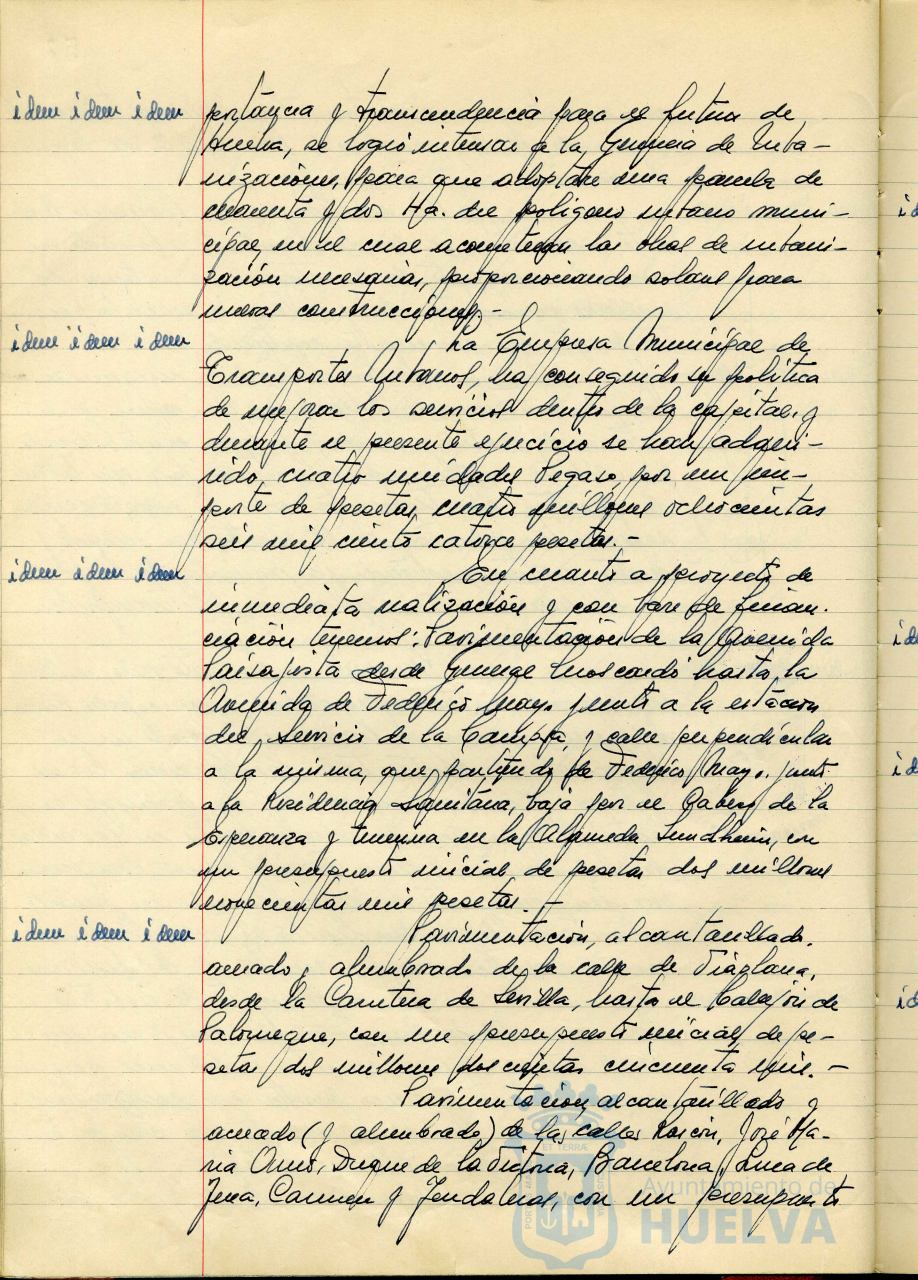 idem idem idem
portancia y transcendencia para el futuro de
Huelva, se logró interesar a la Gerencia de Urba-
nizaciones, para que adoptase una parcela de
cincuenta y dos Ha. del polígono urbano muni-
cipal, en el cual acometieran las obras de urbani-
zación necesarias, proporcionando solares para
nuevas construcciones.-
idem idem idem
La Empresa Municipal de
Transportes Urbanos, ha conseguido su política
de mejorar los servicios dentro de la capital, y
durante el presente ejercicio se han adqui-
rido, cuatro unidades Pegaso, por un im-
porte de pesetas, cuatro millones ochocientas
seis mil ciento catorce pesetas.-
idem idem idem
En cuanto a proyectos de
inmediata realización y con base de finan-
ciación tenemos: Pavimentación de la Avenida
Paisajista desde General Moscardó hasta la
Avenida de Federico Mayo junto a la estación
de Servicio de la Campsa, y calle perpendicular
a la misma, que partiendo de Federico Mayo, junto
a la Residencia Sanitaria, baja por el Cabezo de la
Esperanza y termina en la Alameda Sundheim, con
un presupuesto inicial, de pesetas dos millones
novecientas mil pesetas.-
idem idem idem
Pavimentación, alcantarillado,
acerado, alumbrado de la calle de Viaplana,
desde la Carretera de Sevilla, hasta el Callejón de
Palomeque, con un presupuesto inicial, de pe-
setas dos millones doscientas cincuenta mil.-
Pavimentación, alcantarillado y
acerado (y alumbrado) de las calles Rascón, José Ma-
ria Amo, Duque de la Victoria, Barcelona, Luca de
Jena, Carmen y Jendaleras, con un presupuesto
Ayuntamiento de
HUELVA